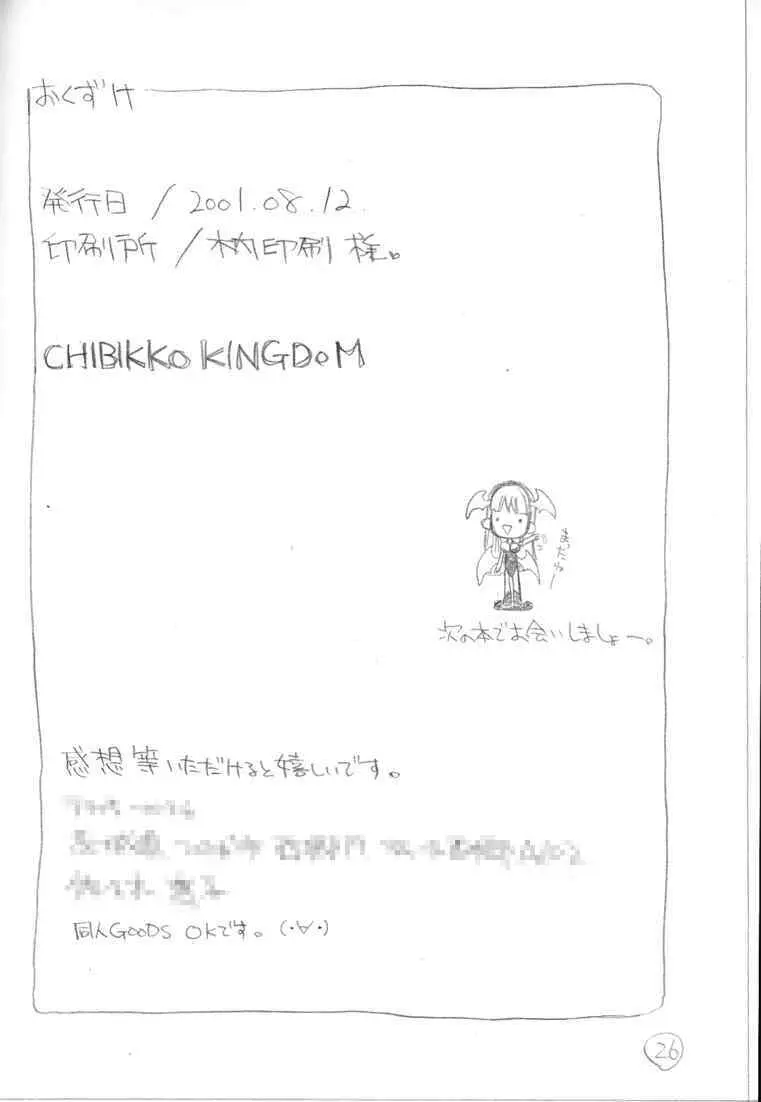 おくずけ
発行日 / 2001.08.12.
印刷所 / 印刷 様。
CHIBIKKO KINGDOM
またねー
次の本でお会いしましょー。
感想等いただけると嬉しいです。
同人GOODS OKです。(・∀・)
26